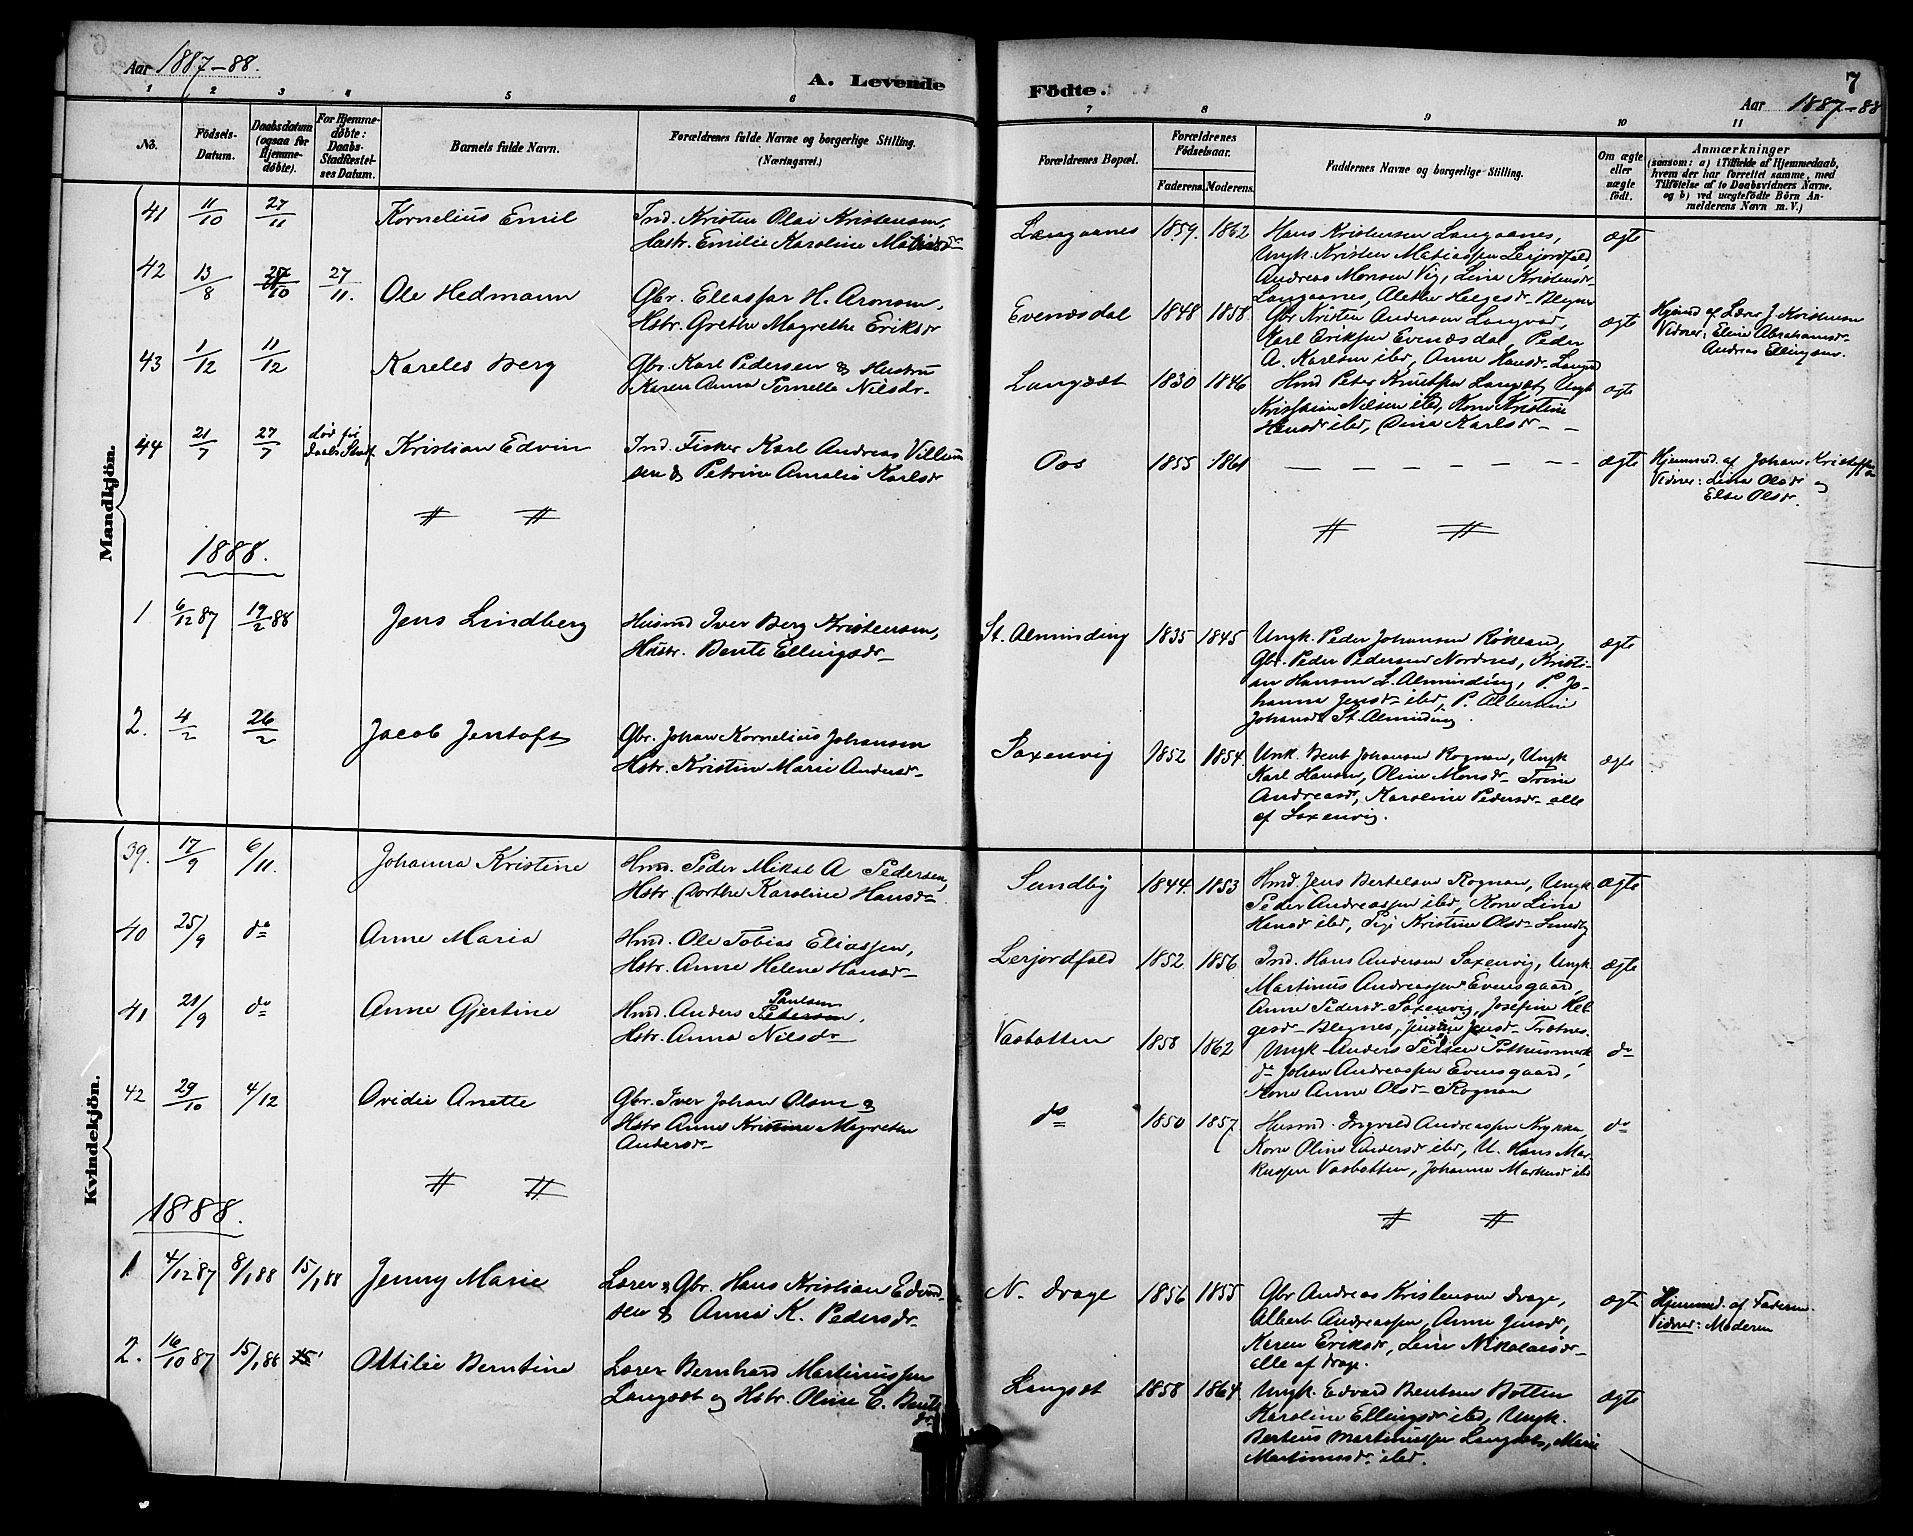 Aar 1887-88.
A. Levende Födte.
7
Aar 1887-88
1 2 3 4 5 6 7 8 9 10 11
No.
Födsels-Datum.
Daabsdatum (ogsaa for Hjemme-döbte).
For Hjemme-döbte: Daabs-Stadfæstel-ses Datum.
Barnets fulde Navn.
Forældrenes fulde Navne og borgerlige Stilling.
(Næringsvei.)
Forældrenes Bopæl.
Forældrenes Födselsaar.
Faderens. Moderens.
Faddernes Navne og borgerlige Stilling.
Om ægte eller uægte födt.
Anmærkninger
(saasom: a) i Tilfælde af Hjemmedaab,
hvem der har forrettet samme, med
Tilföielse af to Daabsvidners Navne.
og b) ved uægtefödte Börn An-
melderens Navn m. V.)
Mandkjön.
41 11/10 27/11 Kornelius Emil
Ind. Kristen Olai Kristensen,
Hustr. Emilie Karoline Matiasdr
Langaanes 1859. 1862
Hans Kristensen Langaanes,
Ungk. Kristen Matiassen Leijordfald,
Andreas Monsen Vig, Lina Kristensdr
Langaanes, Alethe Helgesdr Blegnes
ægte
42 13/8 /10 27/11. Ole Hedmann
Gbr. Eliaspar H. Aronsen,
Hstr. Grethe Magrethe Eriksdr
Evenesdal 1848 1858
Gbr Kristen Andersen Langvad,
Karl Eriksen Evenesdal, Peder
A. Karlsen ibd, Anne Hansdr Langvad
ægte
Hjemd af Lærer J. Kristensen
Vidner: Eline Abrahamsdr
Andreas Ellingsen.
43 1/12 11/12 Kareles Berg
Gbr. Karl Pedersen & Hustru
Karen Anna Pernella Nilsdr
Langsæt 1830 1846
Hmd Peter Knutsen Langsæt, Ungk
Kristian Nilsen ibd, Kone Kristine
Hansdr ibd, Dina Karlsdr
ægte
44 21/7 27/7 död før Daabs Stadf Kristian Edvin
Ind. Fisker Karl Andreas Villum
sen & Petrine Amalie Karlsdr
Oos 1855 1861
— — — — — — —
ægte
Hjemmed. af Johan Kristoffersen
Vidner: Lina Olsdr og
Else Olsdr.
# # # #
1888.
1 6/12 87 19/2 88 Jens Lindberg
Husmd Iver Berg Kristensen,
Hustr. Bente Ellingsdr
St. Alminding 1835 1845
Ungk. Peder Johansen Rökland,
Gbr. Peder Pedersen Nordnes, Kristi-
an Hansen St. Alminding, P. Jo-
hanna Jensdr ibd, P. Albertine
Johansdr St. Alminding.
ægte
2. 4/2 26/2 Jacob Jentoft
Gbr. Johan Kornelius Johansen
Hstr. Kristine Marie Andersdr
Saxenvig 1852 1854.
Unk. Bent Johansen Rognan, Ungk
Karl Hansen, Oline Monsdr Trine
Andreasdr, Karoline Pedersdr alle
af Saxenvig.
ægte
Kvindekjön.
39. 17/9 6/11. Johanna Kristine
Hmd. Peder Mikal A Pedersen,
Hstr. Dorthe Karoline Hansdr
Sundby 1844. 1853
Hmd. Jens Bertelsen Rognan, Ungk
Peder Andreassen ibd, Kone Lina
Hansdr ibd, Pige Kristine Olsdr Sundby
ægte
40 25/9 do Anne Maria
Hmd. Ole Tobias Eliassen,
Hstr. Anne Helene Hansdr
Lerjordfald 1852 1856
Ind. Hans Andersen Saxenvig, Ungk
Martinus Andreassen Evensgaard,
Anne Pedersdr Saxenvig, Josefine Hel-
gesdr Blegnes, Jensine Jensdr Trætnes
ægte
41 21/9 do Anne Gjertine
Hmd. Anders Pedersen, Paulsen
Hstr. Anna Nilsdr
Vasbotten 1858 1862
Ungk Anders Persen Pothusmark
do Johan Andreassen Evensgaard,
Kone Anne Olsdr Rognan
do
42 29/10 4/12 Ovidie Anette
Gbr. Iver Johan Olsen &
Hstr Anne Kristine Magrethe
Andersdr
do 1850 1857
Husmd Ingvald Andreassen Nykken,
Kone Oline Andersdr ibd, U. Hans Mar-
kussen Vasbotten, Johanna Markusdr ibd
do
# # # #
1888.
1 4/12 87 8/1 88 15/1 88 Jenny Marie
Lærer & Gbr. Hans Kristian Edvard-
sen & Anna K. Pedersdr
N. Drage 1856 1855
Gbr Andreas Kristensen Drage,
Albert Andreassen, Anne Jensdr,
Karen Eriksdr, Lina Nikolaisdr
alle af Drage.
ægte
Hjemmed. af Faderen
Vidner: Moderen
2. 16/10 87 15/1 88 15 Ottilie Berntine
Lærer Bernhard Martinussen
Langsæt og Hstr. Oline E. Bents
dr.
Langsæt 1858 1864.
Ungk. Edvard Bentsen Botten
Karoline Ellingsdr ibd, Ungk.
Berteus Martinussen Langsæt, Marie
Martinusdr ibd.
ægte